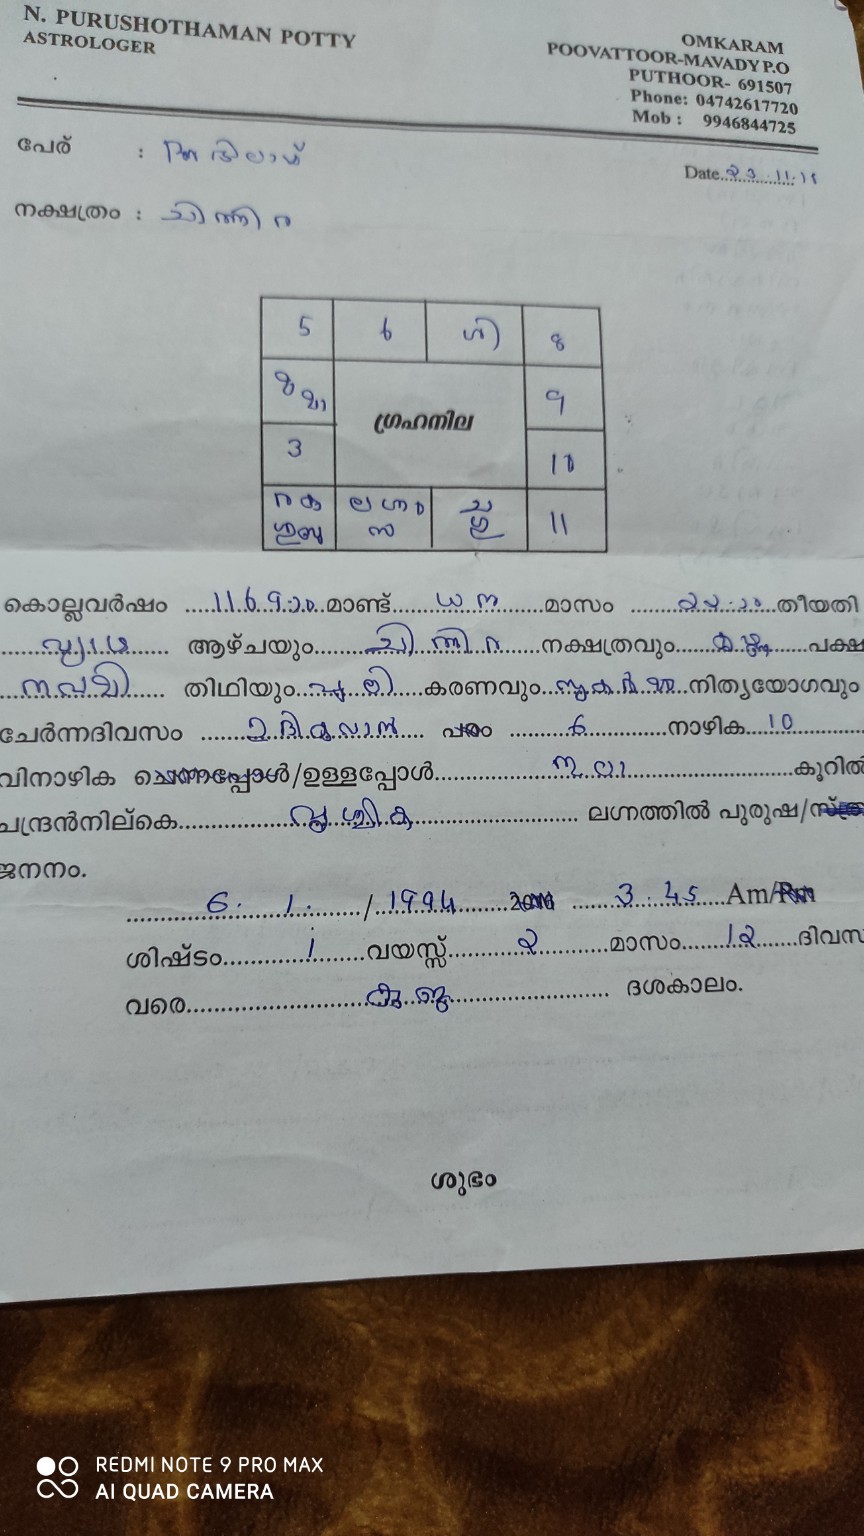 N. PURUSHOTHAMAN POTTY
ASTROLOGER
OMKARAM
POOVATTOOR-MAVADY P.O
PUTHOOR- 691507
Phone: 04742617720
Mob : 9946844725
പേര് :
Date
നക്ഷത്രം : ചിത്തിര
5 6 ശി 8
9
ഗ്രഹനില
3 10
11
കൊല്ലവർഷം 1169 മാണ്ട് ധനു മാസം തീയതി
വ്യാഴ ആഴ്ചയും ചിത്തിര നക്ഷത്രവും പക്ഷ
നവമി തിഥിയും കരണവും നിത്യയോഗവും
ചേർന്നദിവസം പരം 6 നാഴിക 10
വിനാഴിക ചെന്നപ്പോൾ/ഉള്ളപ്പോൾ തുലാ കൂറിൽ
ചന്ദ്രൻനില്കെ വൃശ്ചിക ലഗ്നത്തിൽ പുരുഷ/
ജനനം.
6. 1. / 1994 3.45 Am/
ശിഷ്ടം 1 വയസ്സ് 2 മാസം 12 ദിവസ
വരെ കുജ ദശകാലം.
ശുഭം
REDMI NOTE 9 PRO MAX
AI QUAD CAMERA